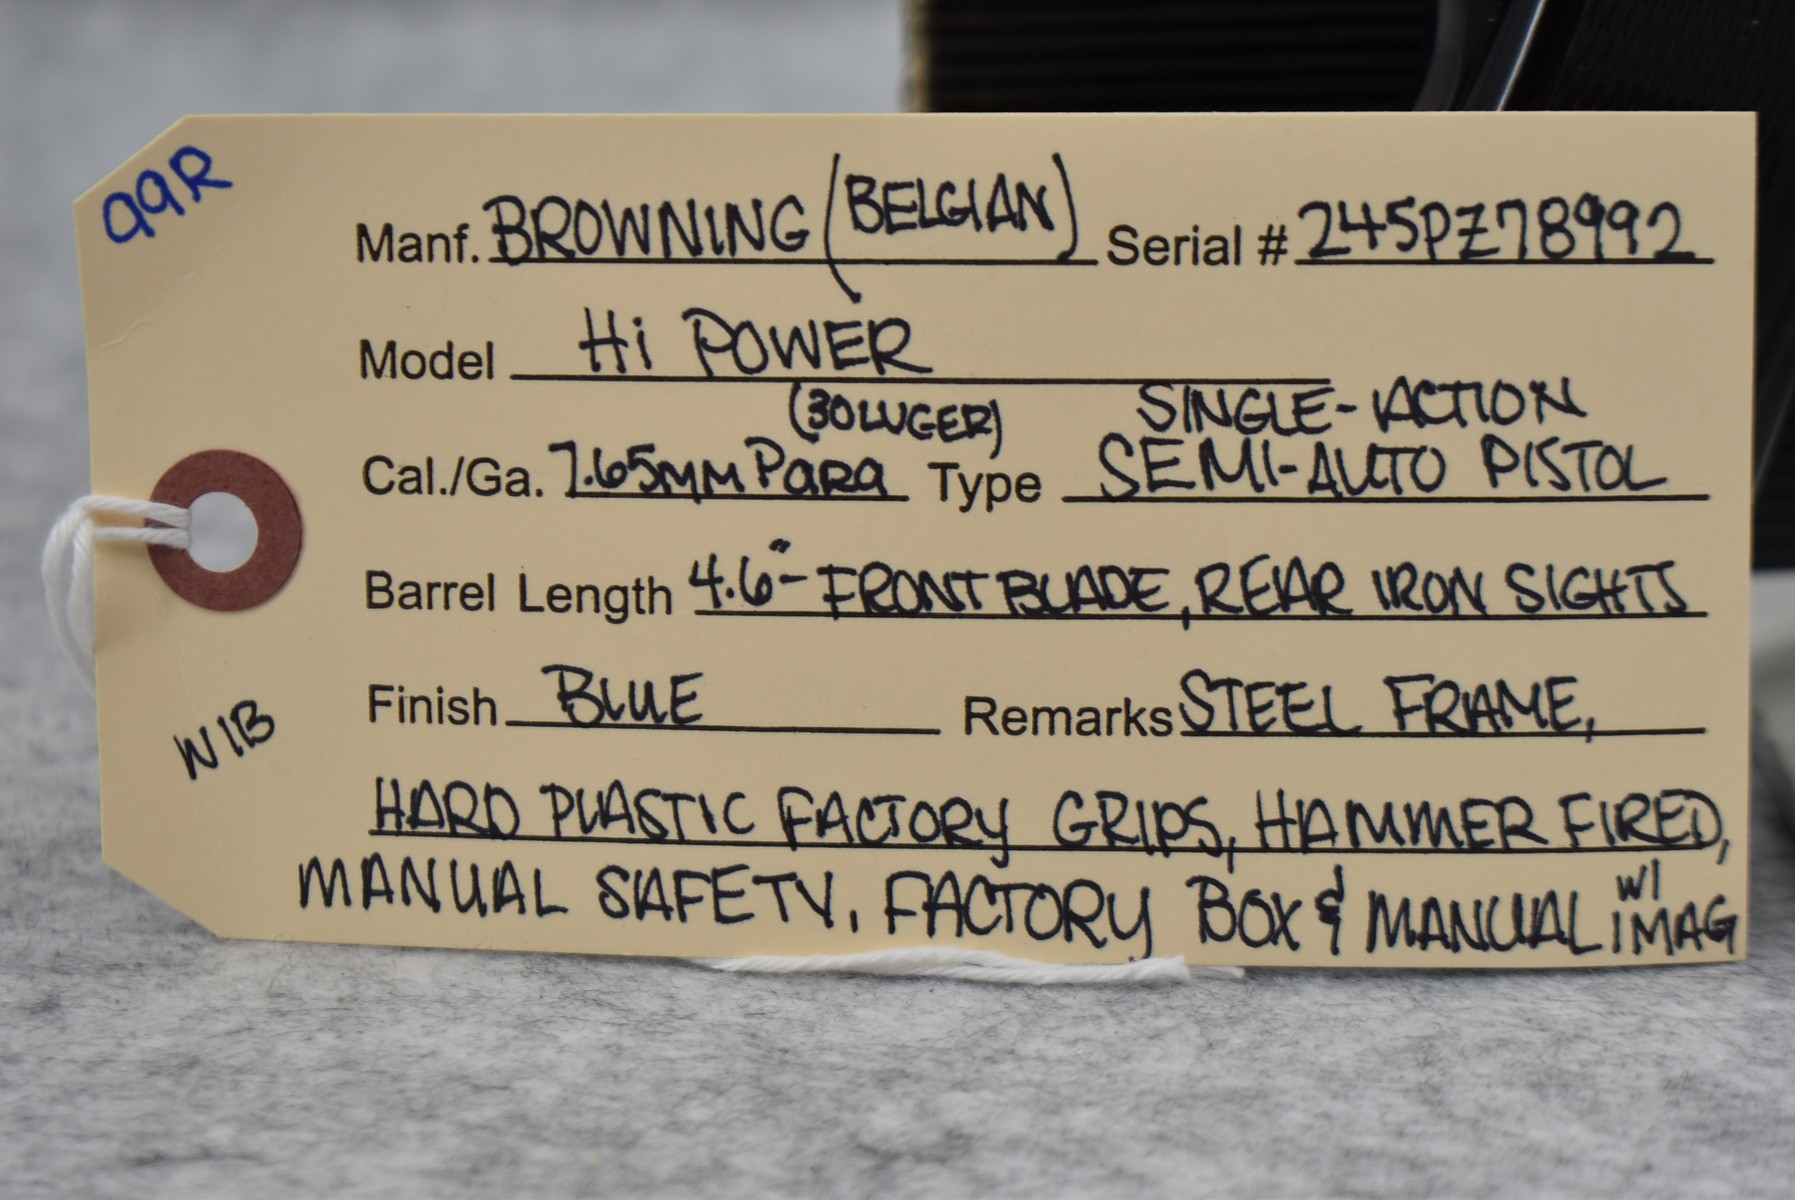 99R
Manf. BROWNING (BELGIAN) Serial # 245PZ78992
Model Hi POWER
(30 LUGER) SINGLE-ACTION
Cal./Ga. 7.65MM Para Type SEMI-AUTO PISTOL
Barrel Length 4.6"- FRONT BLADE, REAR IRON SIGHTS
Finish BLUE Remarks STEEL FRAME,
WIB
HARD PLASTIC FACTORY GRIPS, HAMMER FIRED,
MANUAL SAFETY, FACTORY BOX & MANUAL W/ 1 MAG